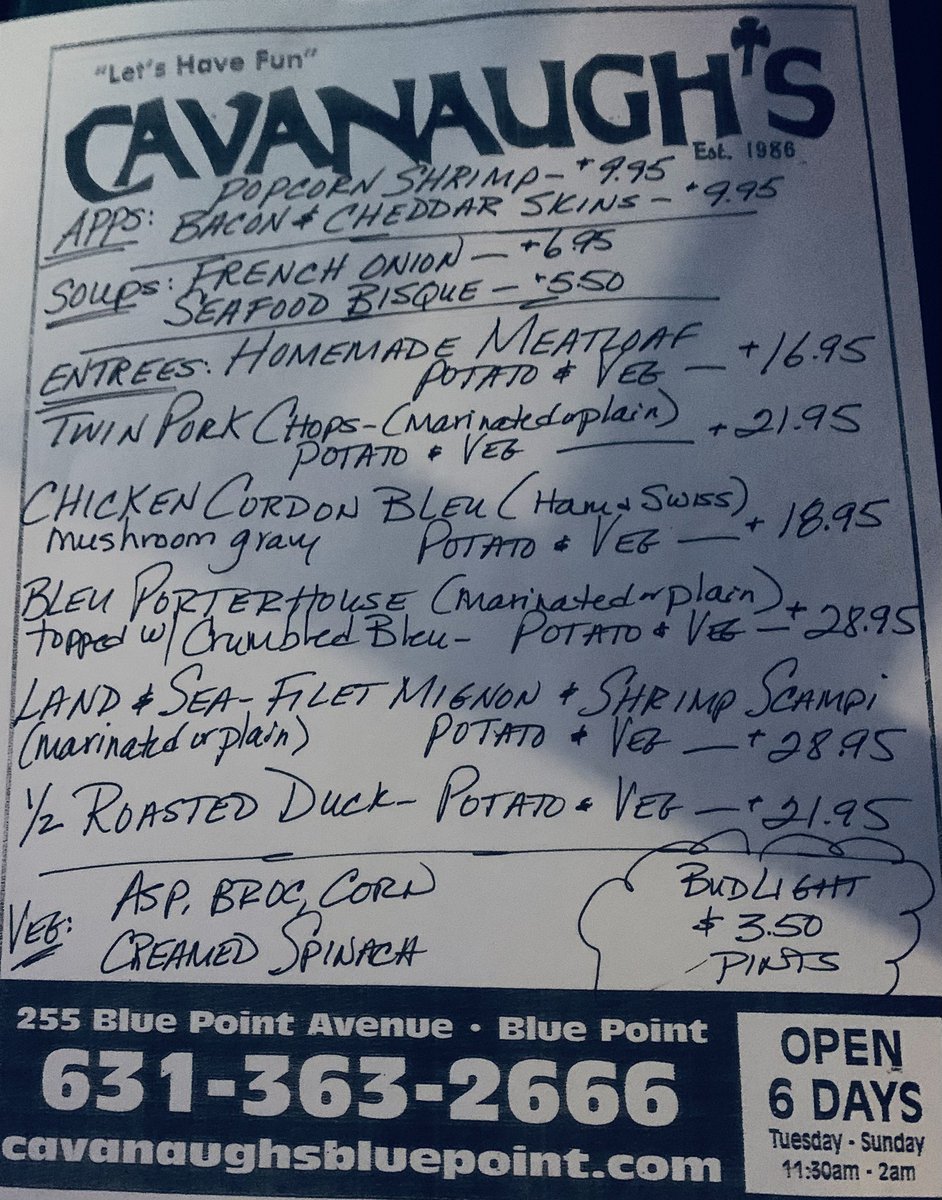 "Let's Have Fun"
CAVANAUGH'S
Est. 1986
POPCORN SHRIMP - $9.95
APPS: BACON & CHEDDAR SKINS - $9.95
SOUPS: FRENCH ONION - $6.95
SEAFOOD BISQUE - $5.50
ENTREES: HOMEMADE MEATLOAF
POTATO & VEG - $16.95
TWIN PORK CHOPS - (Marinated or plain)
POTATO & VEG - $21.95
CHICKEN CORDON BLEU (Ham & Swiss)
mushroom gravy POTATO & VEG - $18.95
BLEU PORTERHOUSE (Marinated or plain)
topped w/ Crumbled Bleu - POTATO & VEG - $28.95
LAND & SEA - FILET MIGNON & SHRIMP SCAMPi
(Marinated or plain) POTATO & VEG - $28.95
1/2 ROASTED DUCK - POTATO & VEG - $21.95
VEG: ASP, BROC, CORN
CREAMED SPINACH
BUD LIGHT
$3.50
PINTS
255 Blue Point Avenue • Blue Point
631-363-2666
cavanaughsbluepoint.com
OPEN
6 DAYS
Tuesday - Sunday
11:30am - 2am